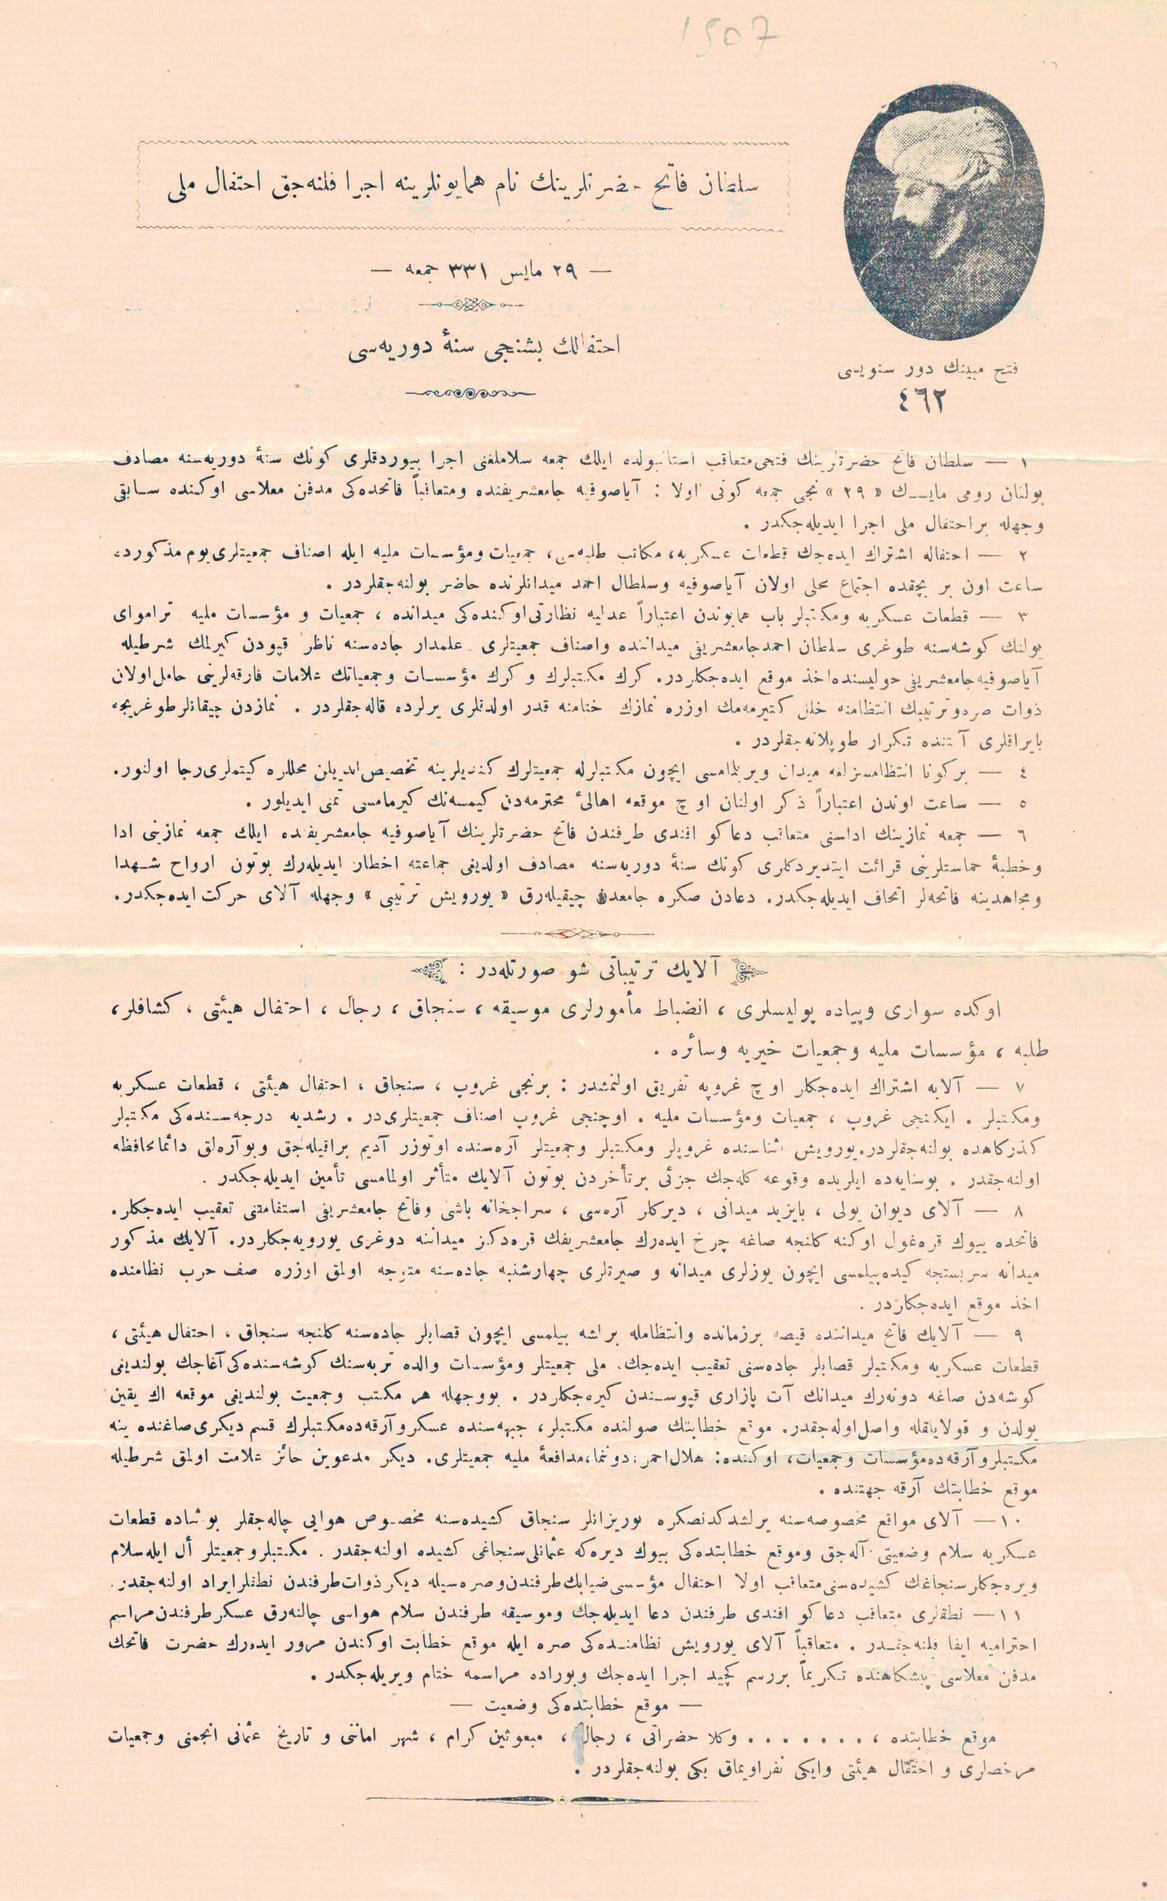 1507
سلطان فاتح حضرتلرينك نام همايونلرينه اجرا قلنه‌جق احتفال ملى
— ٢٩ مايس ٣٣١ جمعه —
احتفالك بشنجى سنهٔ دوريه‌سى
فتح مبينك دور سنويسى
٤٦٢
١ — سلطان فاتح حضرتلرينك فتحى متعاقب استانبولده ايلك جمعه سلاملغنى اجرا بيوردقلرى كونك سنهٔ دوريه‌سنه مصادف
بولنان رومى مايسك « ٢٩ » نجى جمعه كونى اولا : آياصوفيه جامعشريفنده ومتعاقباً فاتحده‌كى مدفن معلاسى اوكنده سابقى
وجهله براحتفال ملى اجرا ايديله‌جكدر .
٢ — احتفاله اشتراك ايده‌جك قطعات عسكريه، مكاتب طلبه‌سى، جمعيات ومؤسسات مليه ايله اصناف جمعيتلرى يوم مذكورده
ساعت اون بر بچقده اجتماع محلى اولان آياصوفيه وسلطال احمد ميدانلرنده حاضر بولنه‌جقلردر .
٣ — قطعات عسكريه ومكتبلر باب همايوندن اعتباراً عدليه نظارتى اوكنده‌كى ميدانده ، جمعيات و مؤسسات مليه تراموای
يولنك كوشه‌سنه طوغرى سلطان احمد جامعشريفى ميداننده واصناف جمعيتلرى علمدار جاده‌سنه ناظر قپودن كيرلمك شرطيله
آياصوفيه جامعشريفى حوليسنده اخذ موقع ايده‌جكلردر. كرك مكتبلرك و كرك مؤسسات وجمعياتك علامات فارقه‌لرينى حامل اولان
ذوات صره وترتيبك انتظامنه خلل كتيرمه‌مك اوزره نمازك ختامنه قدر اولدقلرى يرلرده قاله‌جقلردر . نمازدن چيقانلر طوغريجه
بايراقلرى آلتنده تكرار طوپلانه‌جقلردر .
٤ — بركونا انتظامسزلغه ميدان ويريلمامسى ايچون مكتبلرله جمعيتلرك كنديلرينه تخصيص ايديلن محللره كيتملرى رجا اولنور.
٥ — ساعت اوندن اعتباراً ذكر اولنان اوچ موقعه اهالىٔ محترمه‌دن كيمسه‌نك كيرمامسى تمنى ايديلور .
٦ — جمعه نمازينك اداسنى متعاقب دعاكو افندى طرفندن فاتح حضرتلرينك آياصوفيه جامعشريفنده ايلك جمعه نمازينى ادا
وخطبهٔ حماستلرينى قرائت ايتديردكلرى كونك سنهٔ دوريه‌سنه مصادف اولديغى جماعته اخطار ايديله‌رك بوتون ارواح شهدا
ومجاهدينه فاتحه‌لر اتحاف ايديله‌جكدر. دعادن صكره جامعدن چيقيله‌رق « يورويش ترتيبى » وجهله آلاى حركت ايده‌جكدر.
آلايك ترتيباتى شو صورتله‌در :
اوكده سوارى وپياده پوليسلرى ، انضباط مأمورلرى موسيقه ، سنجاق ، رجال ، احتفال هيئتى ، كشافلر،
طلبه ، مؤسسات مليه وجمعيات خيريه وسائره .
٧ — آلايه اشتراك ايده‌جكلر اوچ غروپه تفريق اولنمشدر : برنجى غروپ ، سنجاق ، احتفال هيئتى ، قطعات عسكريه
ومكتبلر . ايكنجى غروپ ، جمعيات ومؤسسات مليه . اوچنجى غروپ اصناف جمعيتلرى‌در . رشديه درجه‌سنده‌كى مكتبلر
كذركاهده بولنه‌جقلردر. يورويش اثناسنده غروپلر ومكتبلر وجمعيتلر آره‌سنده اوتوزر آديم براقيله‌جق وبو آره‌لق دائما محافظه
اولنه‌جقدر . بوسايه‌ده ايلريده وقوعه كله‌جك جزئى برتأخردن بوتون آلايك متأثر اولمامسى تأمين ايديله‌جكدر .
٨ — آلاى ديوان يولى ، بايزيد ميدانى ، ديركلر آره‌سى ، سراجخانه باشى وفاتح جامعشريفى استقامتنى تعقيب ايده‌جكلر.
فاتحده بيوك قره‌غول اوكنه كلنجه صاغه چرخ ايده‌رك جامعشريفك قره‌دكز ميداننه دوغرى يورويه‌جكلردر. آلايك مذكور
ميدانه سربستجه كيده‌بيلمسى ايچون يوزلرى ميدانه و صيرتلرى چهارشنبه جاده‌سنه متوجه اولمق اوزره صف حرب نظامنده
اخذ موقع ايده‌جكلردر .
٩ — آلايك فاتح ميداننده قيصه برزمانده وانتظامله يرلشه بيلمسى ايچون قصابلر جاده‌سنه كلنجه سنجاق ، احتفال هيئتى ،
قطعات عسكريه ومكتبلر قصابلر جاده‌سنى تعقيب ايده‌جك. ملى جمعيتلر ومؤسسات والده تربه‌سنك كوشه‌سنده‌كى آغاجك بولنديغى
كوشه‌دن صاغه دونه‌رك ميدانك آت پازارى قپوسندن كيره‌جكلردر . بووجهله هر مكتب وجمعيت بولنديغى موقعه اك يقين
يولدن و قولايلقله واصل اوله‌جقدر. موقع خطابتك صولنده مكتبلر، جبهه‌سنده عسكر و آرقه‌ده مكتبلرك قسم ديكرى صاغنده ينه
مكتبلر و آرقه‌ده مؤسسات وجمعيات، اوكنده: هلال احمر، دوننما، مدافعهٔ مليه جمعيتلرى. ديكر مدعوين حائز علامت اولمق شرطيله
موقع خطابتك آرقه جهتنده .
١٠ — آلاى مواقع مخصوصه‌سنه يرلشدكدنصكره بوريزانلر سنجاق كشيده‌سنه مخصوص هوايى چاله‌جقلر بو اثناده قطعات
عسكريه سلام وضعيتى آله‌جق وموقع خطابتده‌كى بيوك ديره‌كه عثمانلى سنجاغى كشيده اولنه‌جقدر . مكتبلر وجمعيتلر أل ايله سلام
ويره‌جكلر سنجاغك كشيده‌سنى متعاقب اولا احتفال مؤسسى ضيابك طرفندن وصره‌سيله ديكر ذوات طرفندن نطقلر ايراد اولنه‌جقدر.
١١ — نطقلرى متعاقب دعاكو افندى طرفندن دعا ايديله‌جك وموسيقه طرفندن سلام هواسى چالنه‌رق عسكر طرفندن مراسم
احتراميه ايفا قلنه‌جقدر . متعاقباً آلاى يورويش نظامنده‌كى صره ايله موقع خطابت اوكندن مرور ايده‌رك حضرت فاتحك
مدفن معلاسى پيشكاهنده تكريماً بررسم كچيد اجرا ايده‌جك وبوراده مراسمه ختام ويريله‌جكدر .
— موقع خطابتده‌كى وضعيت —
موقع خطابتده ، . . . . . . . وكلا حضراتى ، رجال ، مبعوثين كرام ، شهر امانتى و تاريخ عثمانى انجمنى وجمعيات
مرخصلرى و احتفال هيئتى وايكى نفر اويماق بكى بولنه‌جقلردر .